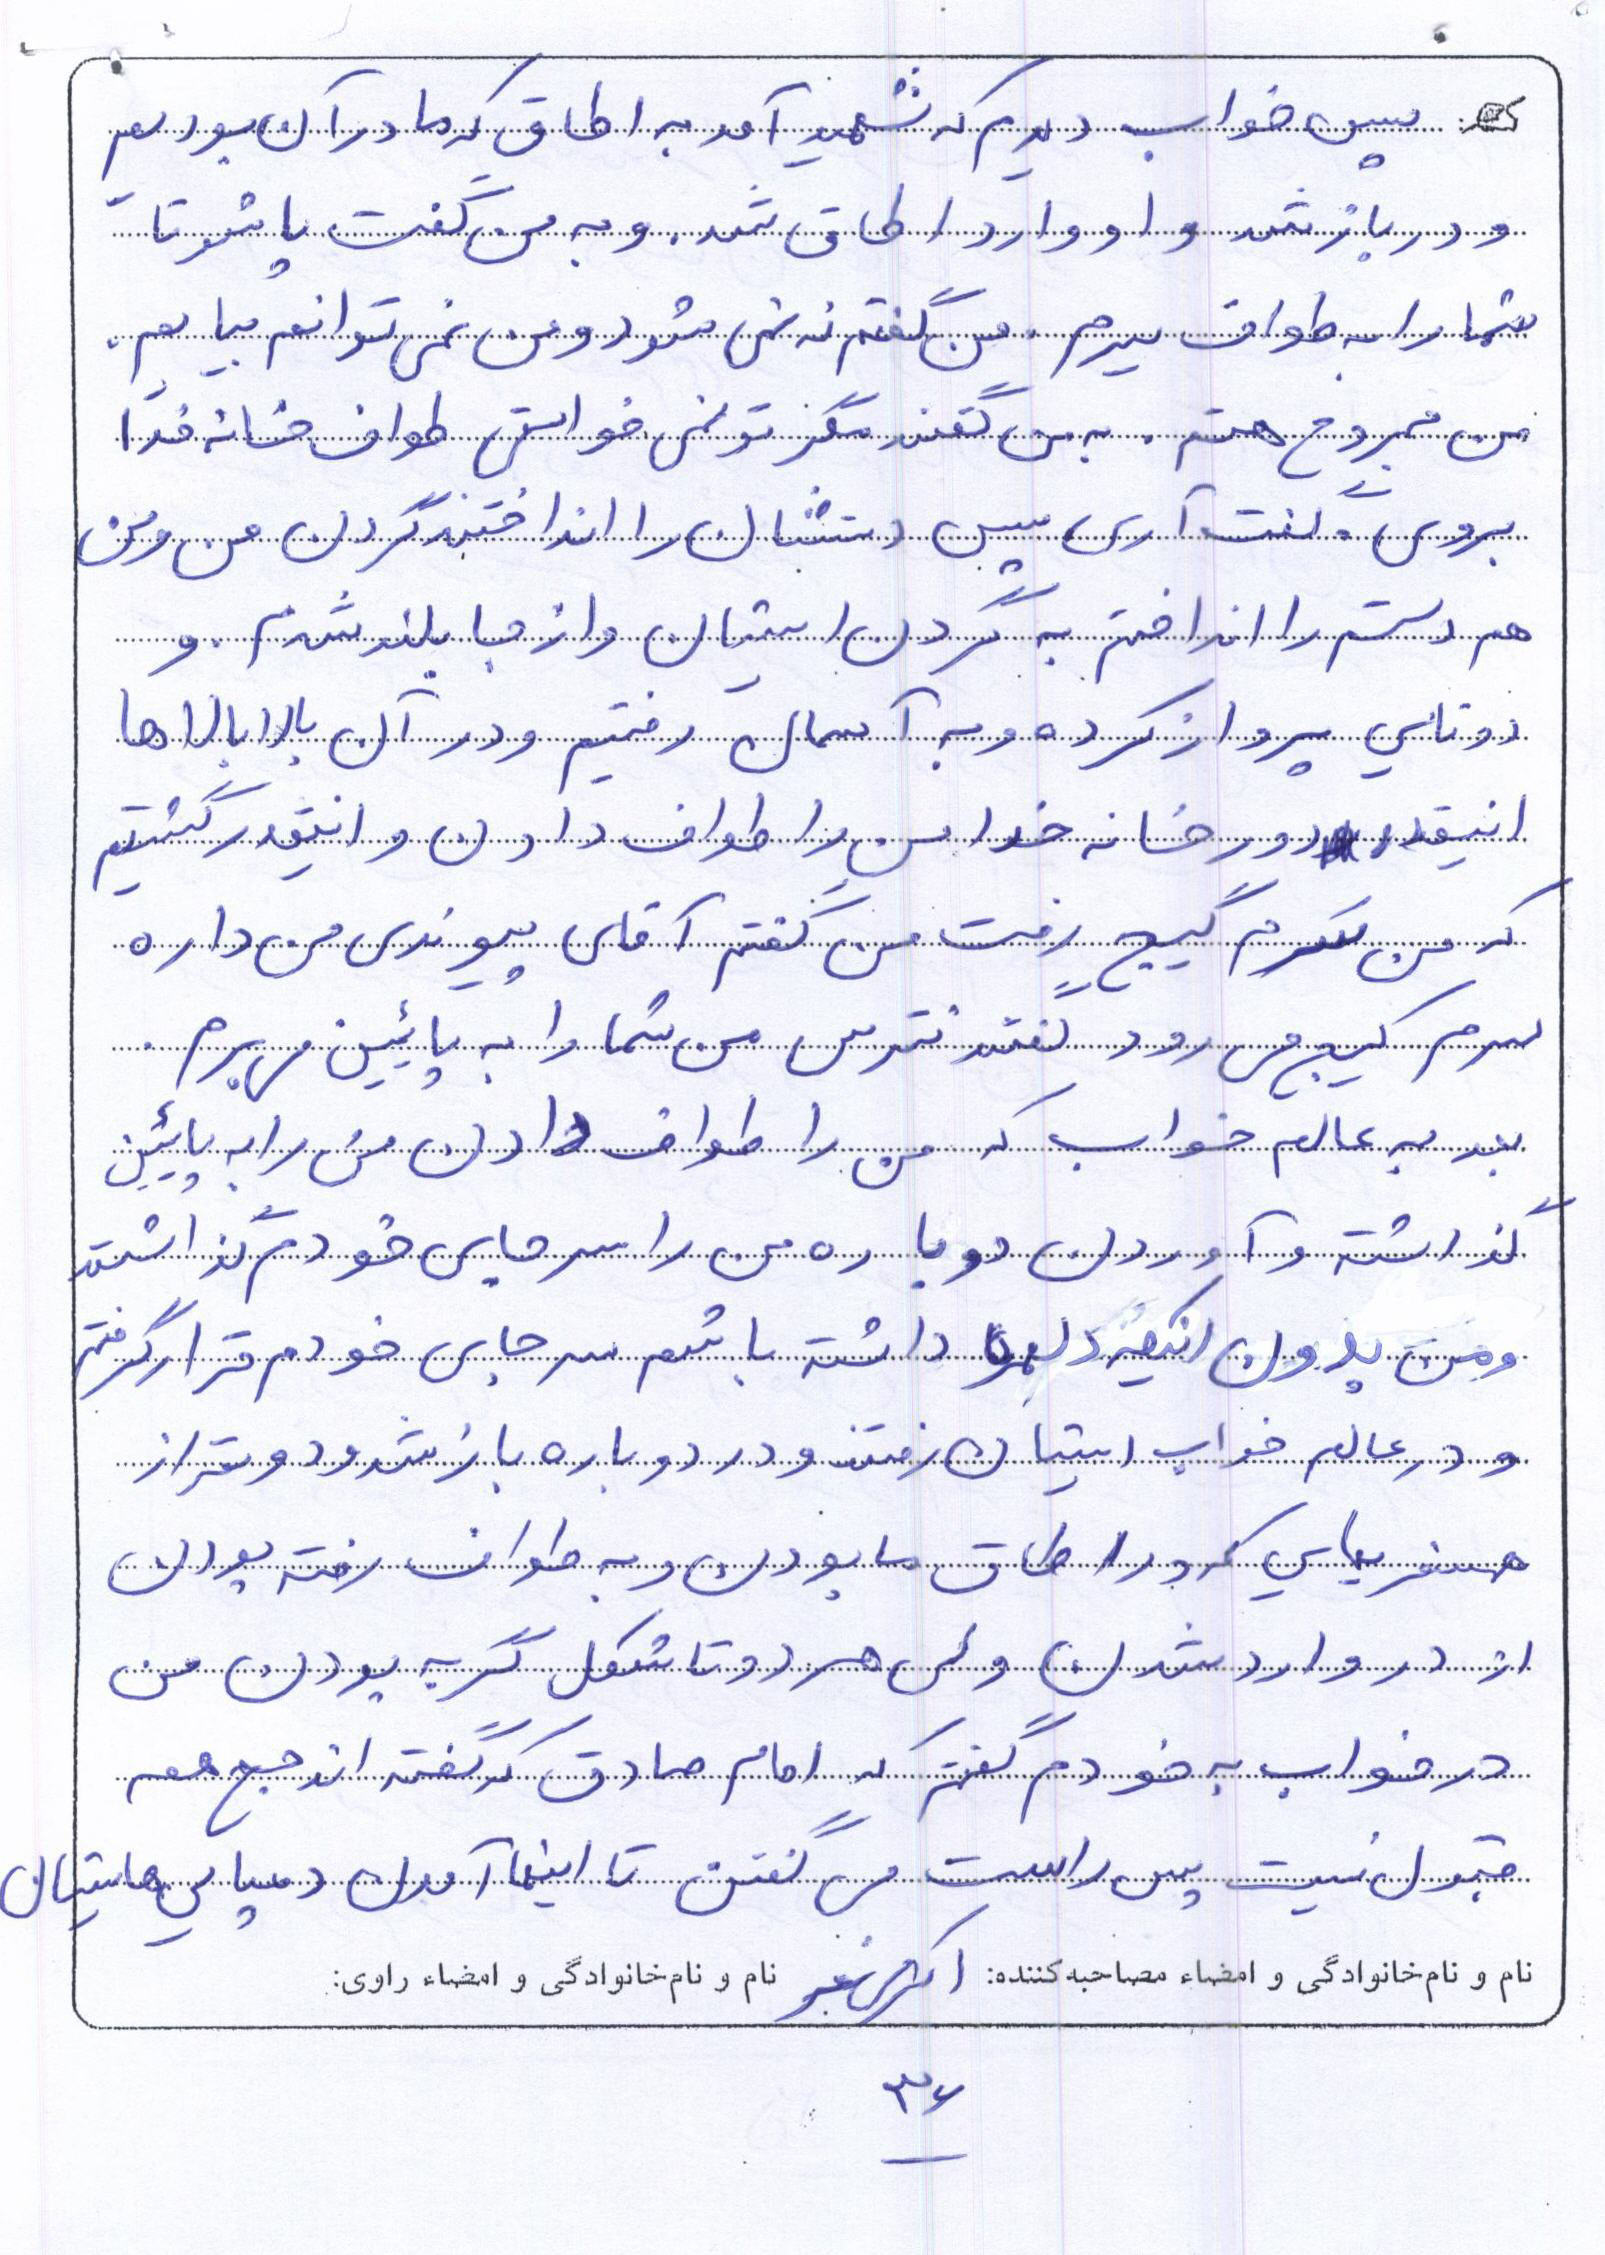 سپس خواب دیدم که شهید آمد به اطاقی که ما در آن بودیم
و در باز شد و او وارد اطاق شد. و به من گفت پاشو تا
شما را به طواف ببرم. من گفتم نه نمی شود و من نمی توانم بیایم.
من مجروح هستم. به من گفتند مگر تو نمی خواستی طواف خانه خدا
بروی؟ گفت آری سپس دستشان را انداختند گردن من و من
هم دستم را انداختم به گردن ایشان و از جا بلند شدم. و
دوتایی پرواز کرده و به آسمان رفتیم و در آن بالا بالاها
انیقدر دور خانه خدا من را طواف دادن و انیقدر گشتیم
که من سرم گیج رفت من گفتم آقای پیوندی من داره
سرم گیج می رود گفتند نترس من شما را به پائین می برم.
بعد به عالم خواب که من را طواف دادن من را به پائین
گذاشته و آوردن دوباره من را سر جای خودم گذاشتند
و من بدون اینکه دلهره داشته باشم سر جای خودم قرار گرفتم
و در عالم خواب ایشان رفتند و در دوباره باز شد و دو نفر از
همسفریهایی که در اطاق ما بودن و به طواف رفته بودن
از در وارد شدن ولی هر دو تا شکل گربه بودن من
در خواب به خودم گفتم که امام صادق که گفته اند حج همه
قبول نیست پس راست می گفتن تا اینها آمدن دمپایی هایشان
نام و نام‌خانوادگی و امضاء مصاحبه‌کننده: نام و نام‌خانوادگی و امضاء راوی:
۳۶